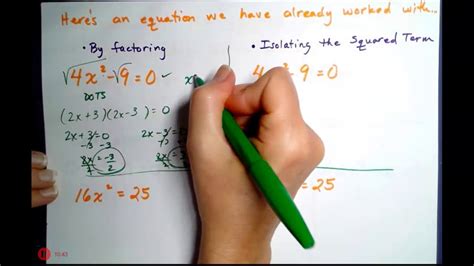 Here's an equation we have already worked with..
• By factoring
√4x² - √9 = 0 ✓
DOTS
(2x + 3)(2x - 3) = 0
2x + 3 = 0 2x - 3 = 0
-3 -3
2x = -3
2 2
16x² = 25
• Isolating the Squared Term
4x² - 9 = 0
= 25
10:43